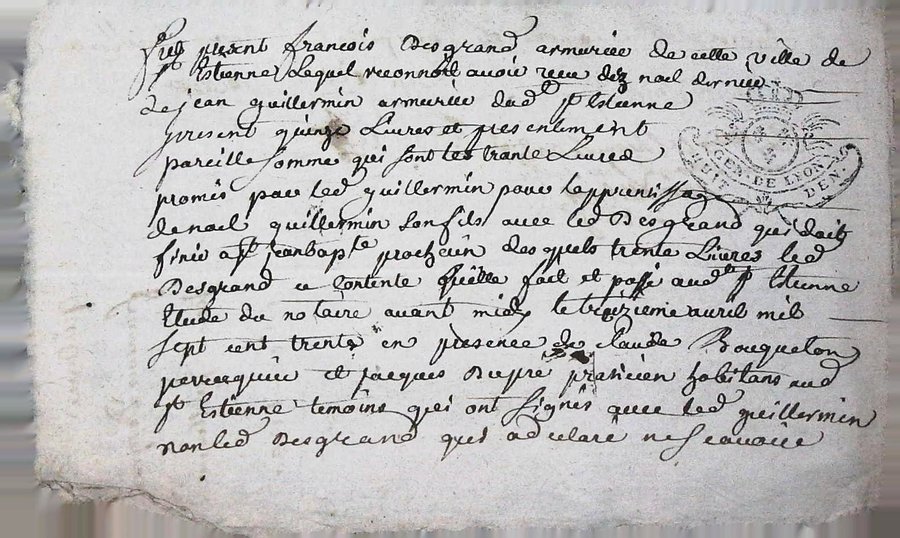 fut present francois Desgrand armurier de cette ville de
st Estienne Lequel reconnoit avoir receu dez noel dernier
de jean guillermin armurier dud st Estienne
present quinze Livres et presentement
pareille somme qui sont les trante Livres
promis par led guillermin pour lapprentissage
de noel guillermin son fils avec led Desgrand qui doit
finir a st jean bapte prochain desquels trente Livres led
Desgrand a contente quitte fait et passé aud st Estienne
Etude du notaire avant midy le treizieme avril mil
sept cent trente en presence de claude Bouqueton
perruquier et jacques Dupré praticien habitans aud
st Estienne temoins qui ont signés avec led guillermin
non led Desgrand qui a declaré ne scavoir
GEN. DE LYON
HUIT DEN.